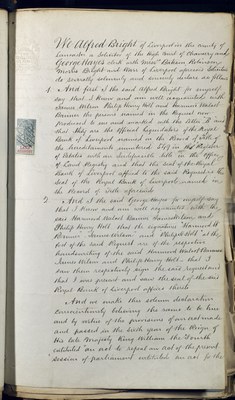 We Alfred Bright of Liverpool in the county of
Lancaster a Solicitor of the High Court of Chancery and
George Hayes clerk with Messrs
Bright and of Liverpool aforesaid
do severally solemnly and sincerely declare as follows
1. And first I the said Alfred Bright for myself
say that I know and am well acquainted with
James Nelson Philip Henry Holt and
the persons named in the Request now
produced to me and marked with the letter A and
that they are the Official Liquidators of the Royal
Bank of Liverpool named in the
the
of with an title in the Office
of Land Registry and that the seal of the Royal
Bank of Liverpool affixed to the said Request is the
seal of the Royal Bank of Liverpool
aforesaid
2. And I the said George Hayes for myself say
that I know and am well acquainted with the
said James Nelson and
Philip Henry Holt that the signatures
James Nelson and Philip H Holt at the
foot of the said Request are of the respective
handwriting of the said
James Nelson and Philip Henry Holt that I
saw them respectively sign the said request and
that I was present and saw the seal of the said
Royal Bank of Liverpool affixed thereto
And we make this solemn declaration
conscientiously believing the same to be true
and by virtue of the provisions of an act made
and passed in the sixth year of the Reign of
His late Majesty King William the Fourth
intituled an act to repeal an act of the present
session of parliament intituled an act for the